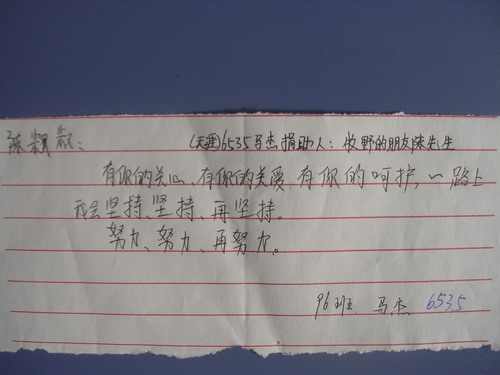 陈叔叔：
(天涯)6535马杰捐助人：牧野的朋友陈先生
有你的关心、有你的关爱 有你的呵护，一路上
我会坚持、坚持、再坚持。
努力、努力、再努力。
96班 马杰 6535